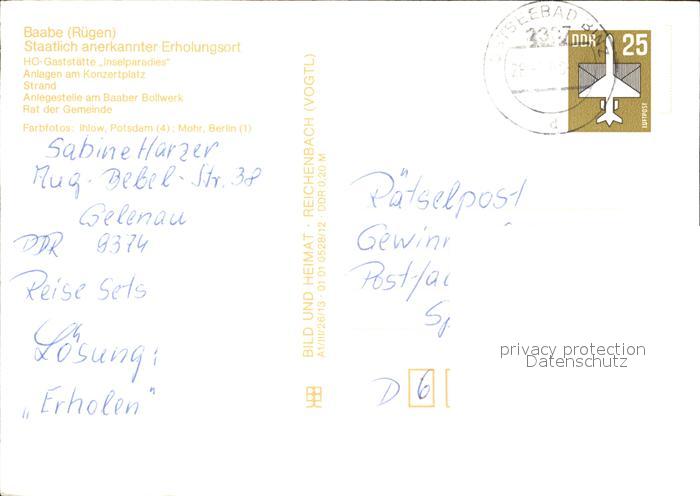 Baabe (Rügen)
Staatlich anerkannter Erholungsort
HO-Gaststätte „Inselparadies"
Anlagen am Konzertplatz
Strand
Anlegestelle am Baaber Bollwerk
Rat der Gemeinde
Farbfotos: Ihlow, Potsdam (4); Mohr, Berlin (1)
Sabine Harzer
Aug.-Bebel-Str. 38
Gelenau
DDR 9374
Reise Sets
Lösung:
„Erholen"
BILD UND HEIMAT · REICHENBACH (VOGTL)
A1/III/26/13 · 01 01 0528/12 · DDR 0,20 M
OSTSEEBAD
2337
d
DDR 25
LUFTPOST
Rätselpost
Gewinn
Post
D 6
privacy protection
Datenschutz